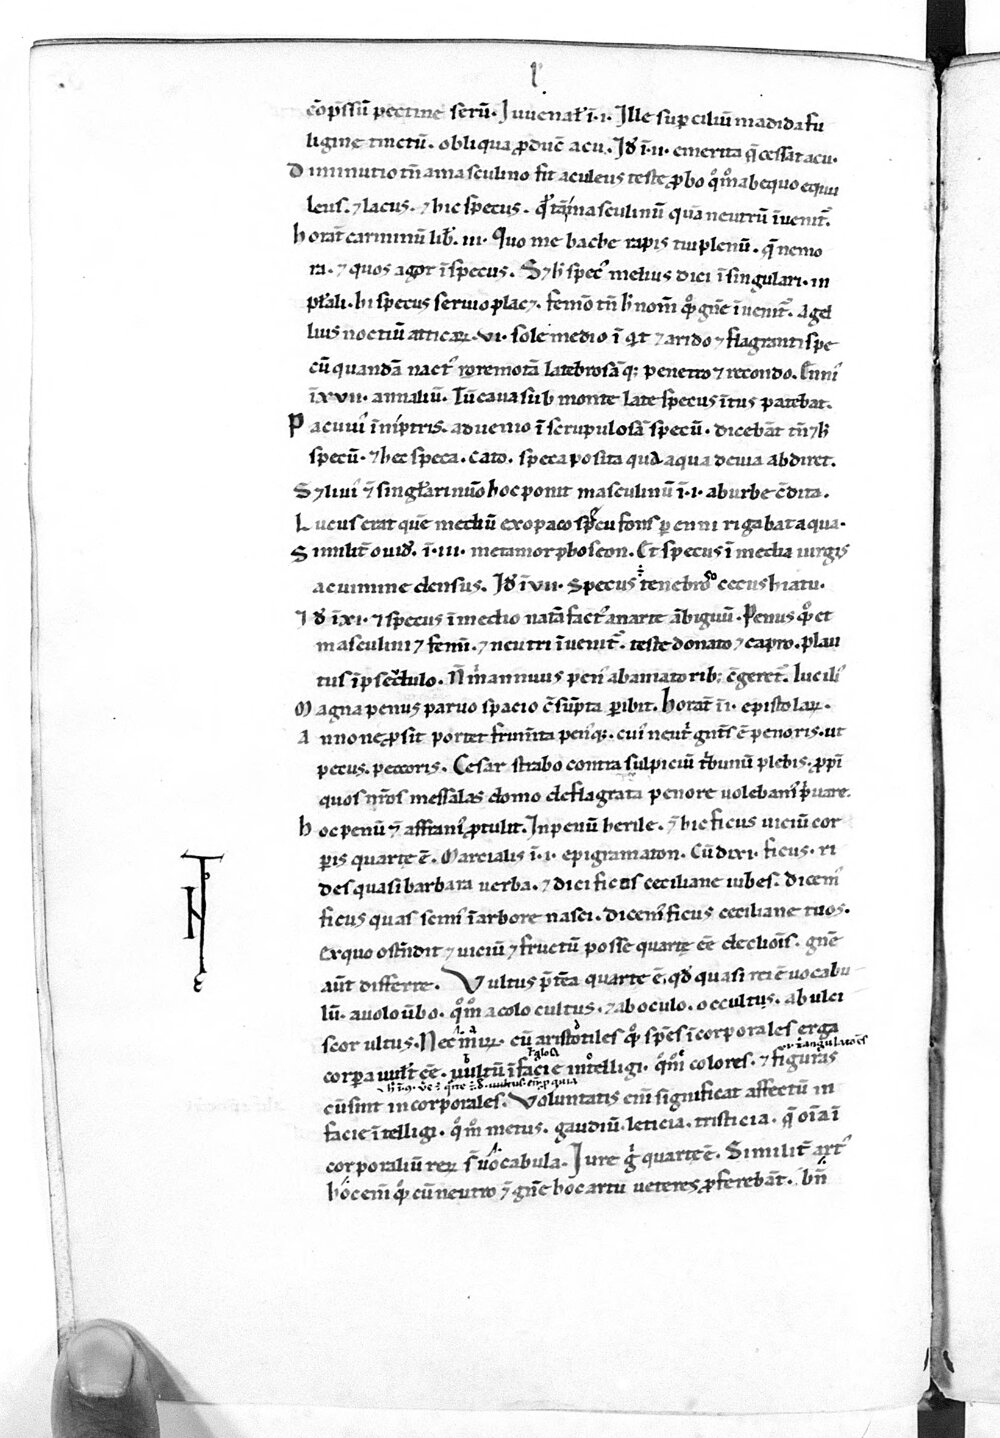 cōp̄ssū pectine serū. Juuenał ī.i. Ille supciliū madida fu
ligine tinctū. obliqua ꝓduc̄ acu. Jd̄ ī.ii. emerita q̄ cessat acu.
Diminutio tn̄ a masculino fit aculeus teste ꝓbo qͦm̄ ab equo equu
leus. ⁊ lacus. ⁊ hic specus. masculinū quā neutrū īuenit᷑.
horat᷑ carminū lib̄. iii. Quo me bache rapis tui plenū. q̄ nemo
ra. ⁊ quos agor ī specus. S; ⁊ h̄ specꝰ melius dici ī singulari. in
pł̄ali. hi specus seruio plac⁊. femō tn̄ h̄ nom̄ qͦꝫ gn̄e īuenit᷑. Agel
lius noctiū atticaꝝ. vi. sole medio ⁊ arido ⁊ flagranti spe
cū quandā nactꝰ remotā latebrosāqꝫ penetro ⁊ recondo. Enniꝰ
ī xvii. annaliū. Tū caua sub monte late specus ītus patebat.
Pacuuiꝰ ī aduenio ī scrupulosā specū. dicebāt tn̄ ⁊ h̄
specū. ⁊ hec speca. Cato. speca posita qua aqua deuia abdiret.
S; ⁊ liuiꝰ ī singlari nūo hoc ponit masculinū ī.i. ab urbe c̄dita.
Lucus erat quē mediū ex opaco specu fons ꝑenni rigabat aqua.
Similit᷑ ouid̄. ī.iii. metamorphoseon. Et specus ī media uirgis
ac uimine densus. Jd̄ ī vii. Specus tenebroso cecus hiatu.
Jd̄ ī xi. ⁊ specus ī medio natā factꝰ an arte ābiguū. Penus qͦꝫ et
masculini ⁊ femī. ⁊ neutri īuenit᷑. teste donato ⁊ capro. plau
tus ī pseūdulo. annuus penꝰ ab amatoribꝫ c̄geret᷑. luciliꝰ
Magna penus paruo spacio c̄sūpta ꝑibit. horat᷑ ī.i. epistolaꝝ.
Annone ꝓsit portet frumīta penꝰqꝫ. cuiꝰ neut̄ gnt̄s ē penoris. ut
pecus. pecoris. Cesar strabo contra sulpiciū t̄bunū plebis. ꝓpi
quos nr̄os messalas domo deflagrata penore uolebamꝰ p̄uare.
hoc penū ⁊ affraniꝰ ꝓtulit. In penū herile. ⁊ hic ficus uiciū cor
ꝑis quarte ē. Marcialis ī.i. epigramaton. Cū dixi. ficus. ri
des quasi barbara uerba. ⁊ dici ficus ceciliane iubes. dicemꝰ
ficus quas scimꝰ ī arbore nasci. dicemꝰ ficus ceciliane tuos.
Ex quo ostēdit ⁊ uiciū ⁊ fructū posse quarte ēē decliōīs. gn̄e
aūt differre. Vultus p̄tea quarte ē. qd̄ quasi rei ē uocabu
lū. a uolo ūbo. qͦm̄ a colo cultus. ⁊ ab oculo. occultus. ab ulci
scor ultus. Nec miꝝ. cū aristotiles qͦꝫ spēs īcorporales erga
corꝑa uult ēē. uultū ī facie intelligi. qͦm̄ colores. ⁊ figuras
cū sint incorporales. Voluntatis enī significat affectū in
facie ītelligi. qͦm̄ metus. gaudiū. leticia. tristicia. q̄ oīa ī
corporaliū reꝝ s̄ uocabula. Jure gͦ quarte ē. Similit᷑ artꝰ
h̄ cem̄ qͦꝫ cū neutro ⁊ gn̄e hoc artu ueteres ꝓferebāt. bn̄